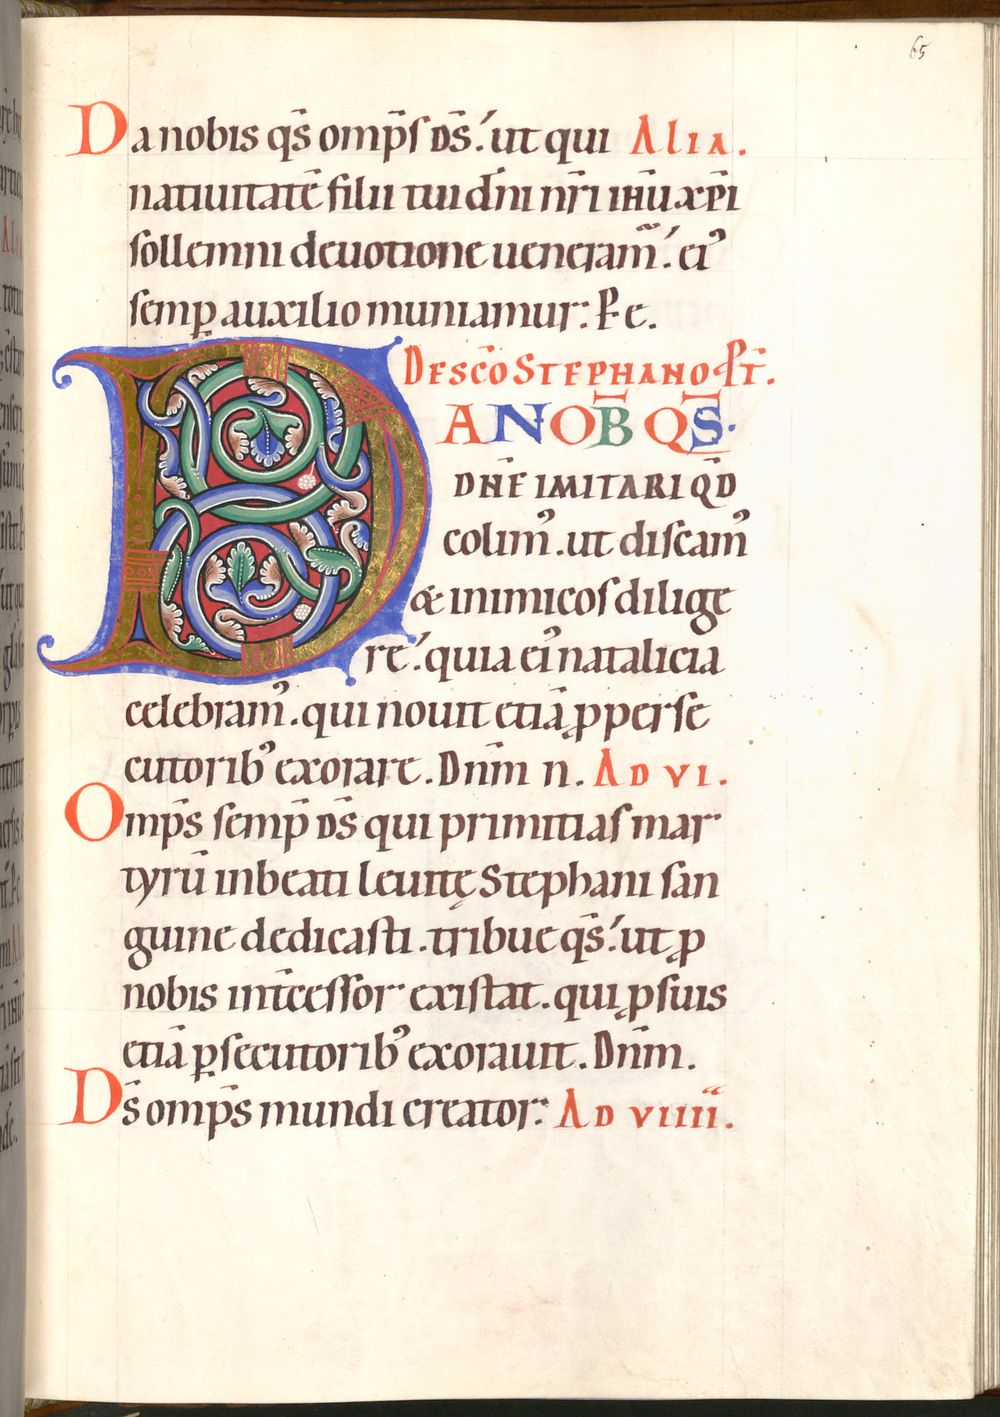 65
Da nobis q̄s omp̄ſ d̄s. ut qui Alia.
natiuitatē filii tui dn̄i nr̄i ih̄u xp̄i
sollemni deuotione ueneram̃. ei᾽
semꝑ auxilio muniamur: P e.
De sc̄o Stephano ꝓt̄.
DA NOB̄ Q̄S.
DN̄E IMITARI QD̄
colim᾽. ut discam᾽
& inimicos dilige
re. quia ei᾽ natalicia
celebram᾽. qui nouit etiā ꝓ perse
cutorib᾽ exorare. Dn̄m n. Ad vi.
Omp̄s semp̄ d̄s qui primitias mar
tyrū in beati leuitę Stephani san
guine dedicasti. tribue q̄s. ut ꝓ
nobis int̄cessor existat. qui ꝓ suis
etiā ꝑsecutorib᾽ exorauit. Dn̄m.
D̄s omp̄s mundi creator: Ad viiii.